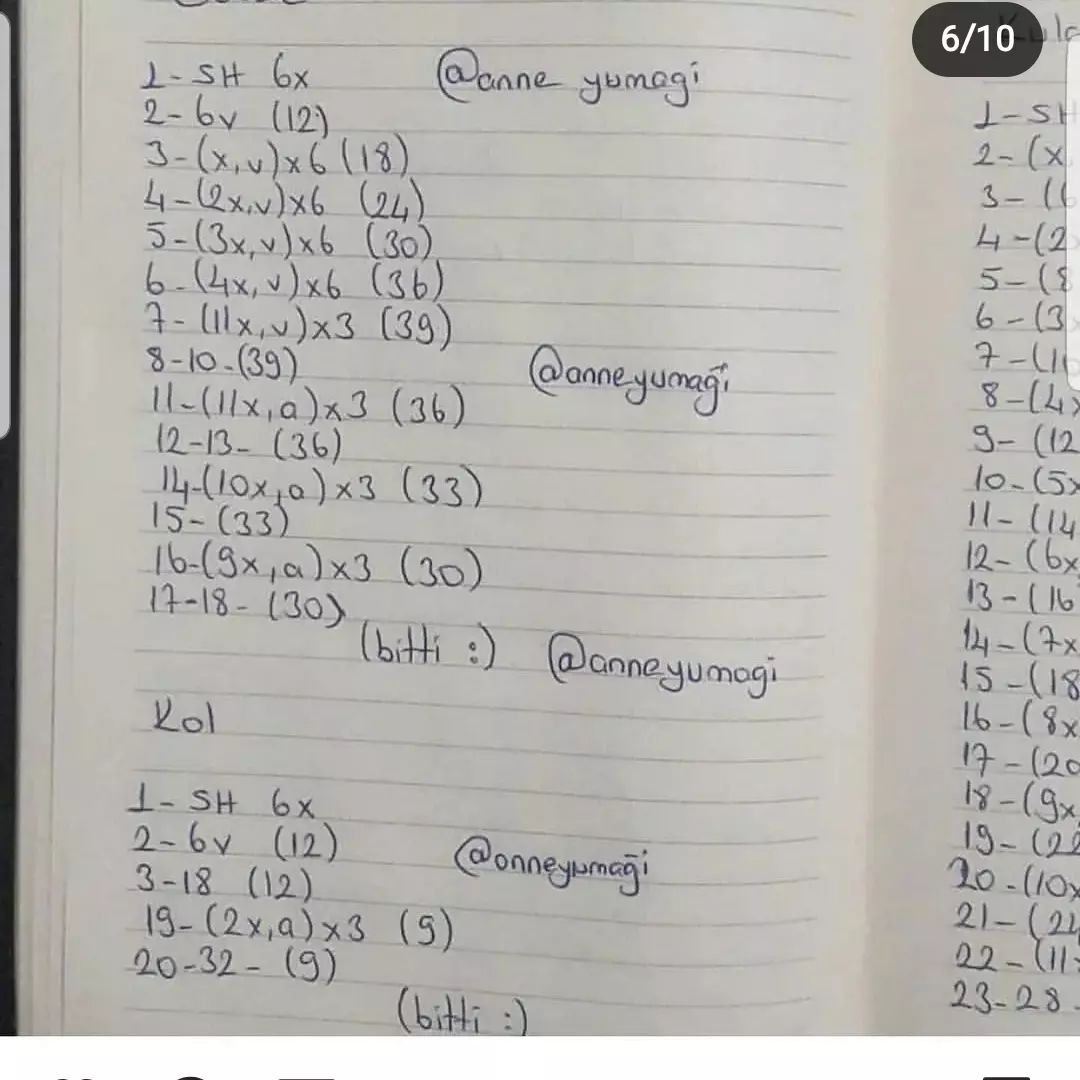 6/10
1- SH 6x @anne yumagi
2- 6v (12)
3- (x,v)x6 (18)
4- (2x,v)x6 (24)
5- (3x,v)x6 (30)
6- (4x,v)x6 (36)
7- (11x,v)x3 (39)
8-10-(39) @anneyumaği
11-(11x,a)x3 (36)
12-13- (36)
14-(10x,a)x3 (33)
15- (33)
16-(9x,a)x3 (30)
17-18- (30)
(bitti :) @anneyumagi
Kol
1- SH 6x
2- 6v (12)
3-18 (12) @anneyumaği
19- (2x,a)x3 (9)
20-32- (9)
(bitti :)
1-SH
2- (x
3- (6
4-(2
5-(8
6-(3
7-(10
8-(4x
9- (12
10-(5x
11- (14
12- (6x
13-(16
14-(7x
15-(18
16-(8x
17-(20
18-(9x
19-(22
20-(10x
21-(24
22-(11
23-28-